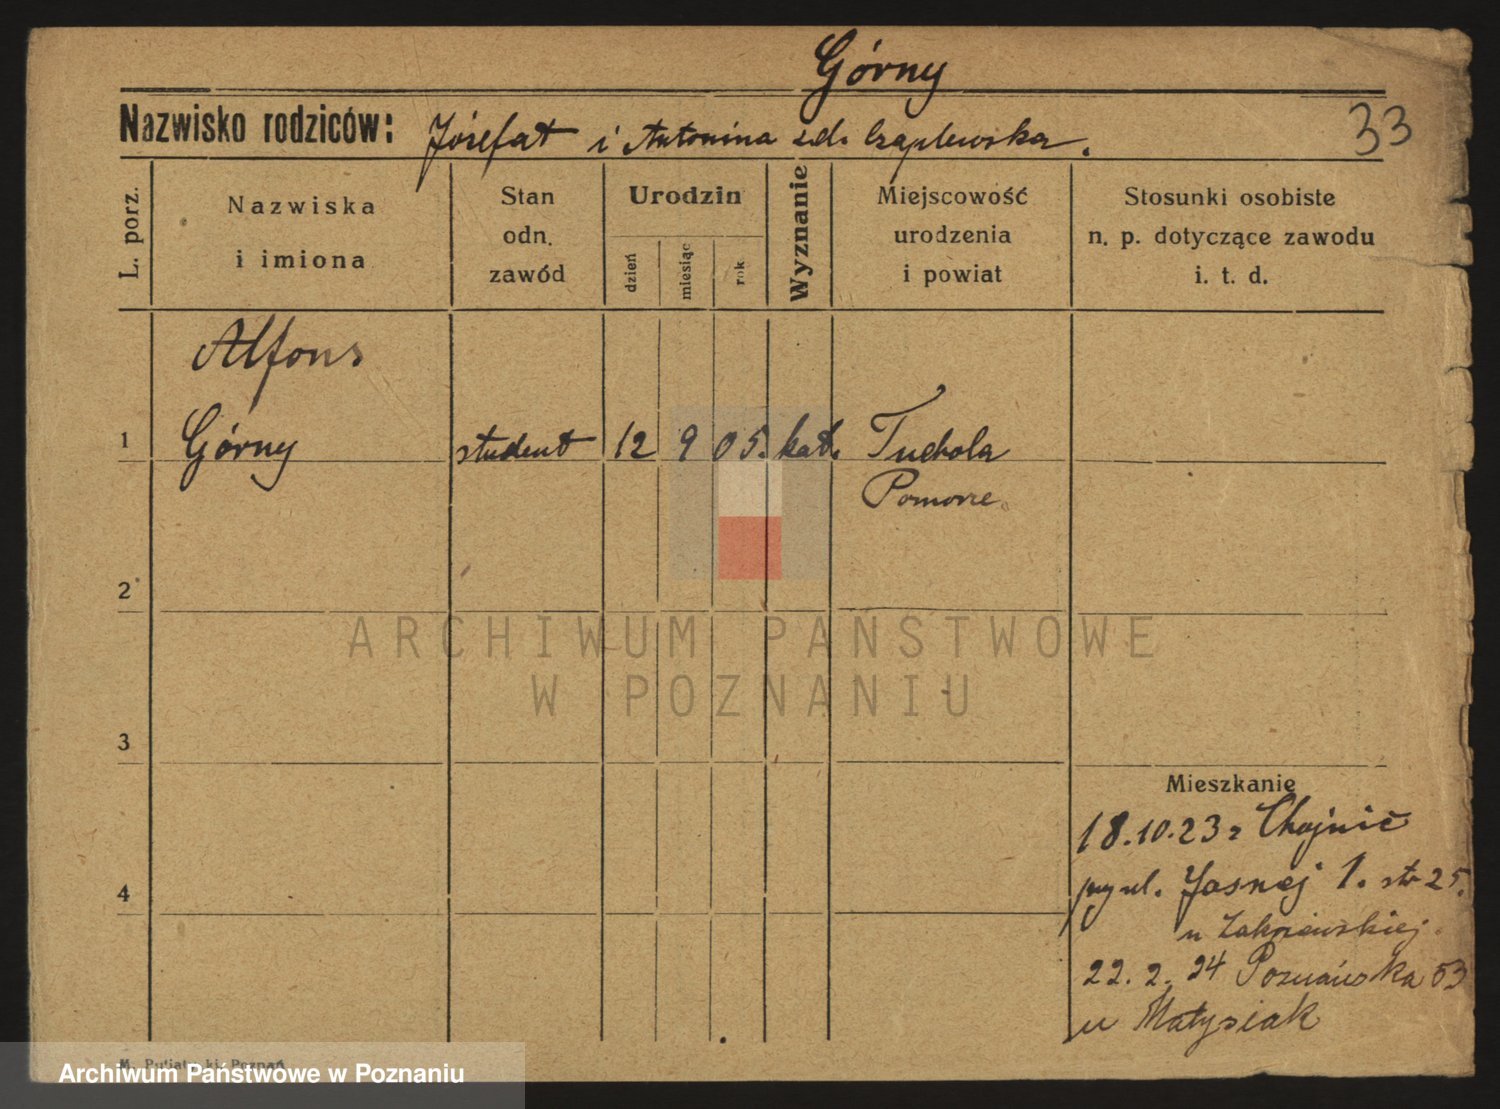 Górny
33
Nazwisko rodziców: Józefat i Antonina z d. Czaplewska.
L. porz.
Nazwiska
i imiona
Stan
odn.
zawód
Urodzin
dzień
miesiąc
rok
Wyznanie
Miejscowość
urodzenia
i powiat
Stosunki osobiste
n. p. dotyczące zawodu
i. t. d.
Alfons
1 Górny student 12 9 05. kat. Tuchola
Pomorze.
2
ARCHIWUM PAŃSTWOWE
W POZNANIU
3
Mieszkanie
18.10.23 z Chojnic
4
przy ul. Jasnej 1. str 25.
u Zakrzewskiej.
22. 2. 24 Poznańska 53
u Matysiak
Poznań
Archiwum Państwowe w Poznaniu